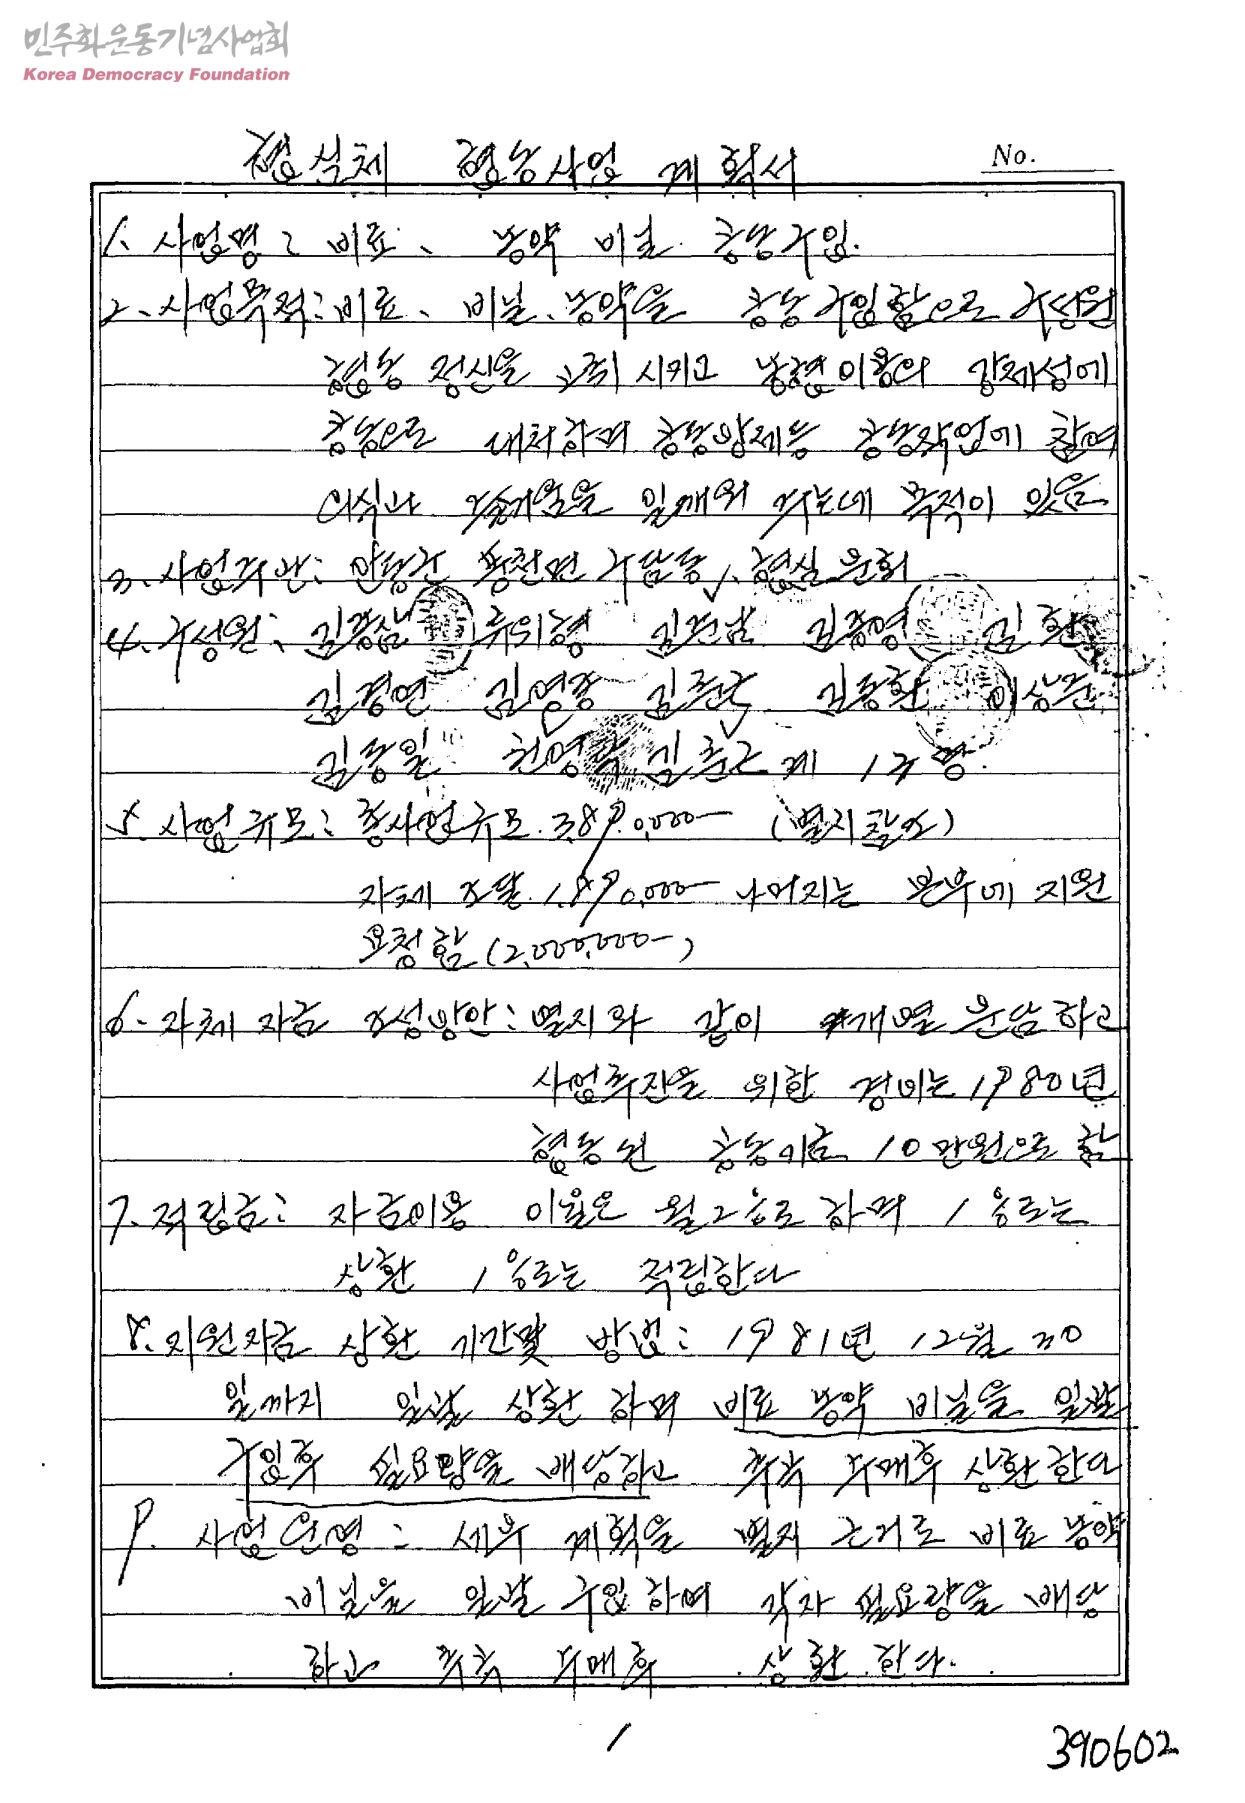 민주화운동기념사업회
Korea Democracy Foundation
협실체 협동사업 계획서 No.
1. 사업명: 비료、 농약 비닐 공동구입.
2. 사업목적: 비료、 비닐、농약을 공동구입함으로 구성원
협동 정신을 고취 시키고 농협이용의 강제성에
공동으로 대처하며 공동방제등 공동작업에 참여
의식과 즐거움을 일깨워 주는데 목적이 있음
3. 사업주관: 안동군 풍천면 구담동 협실분회
4. 구성원: 김 류위형 김종영 김
김경연 김영중 김춘 김종환 이상준
김종일 천영 김춘근 계 13명.
5. 사업규모: 총사업규모 3,890,000— (별지참조)
자체 조달 1,890,000— 나머지는 본부에 지원
요청함 (2,000,000—)
6. 자체 자금 조성방안: 별지와 같이 개별 분담하고
사업추진을 위한 경비는 1980년
협동된 공동기금 10만원으로 함
7. 적립금: 자금이용 이율은 월2%로 하며 1%로는
상환 1%로는 적립한다
8. 지원자금 상환 기간및 방법: 1981년 12월 30
일까지 일괄 상환 하며 비료 농약 비닐을 일괄
구입후 필요량을 배당하고 추곡 수매후 상환한다
9. 사업운영: 세부 계획을 별지 근거로 비료 농약
비닐을 일괄 구입하여 각자 필요량을 배당
하고 추곡 수매후 상환 한다.
1
390602